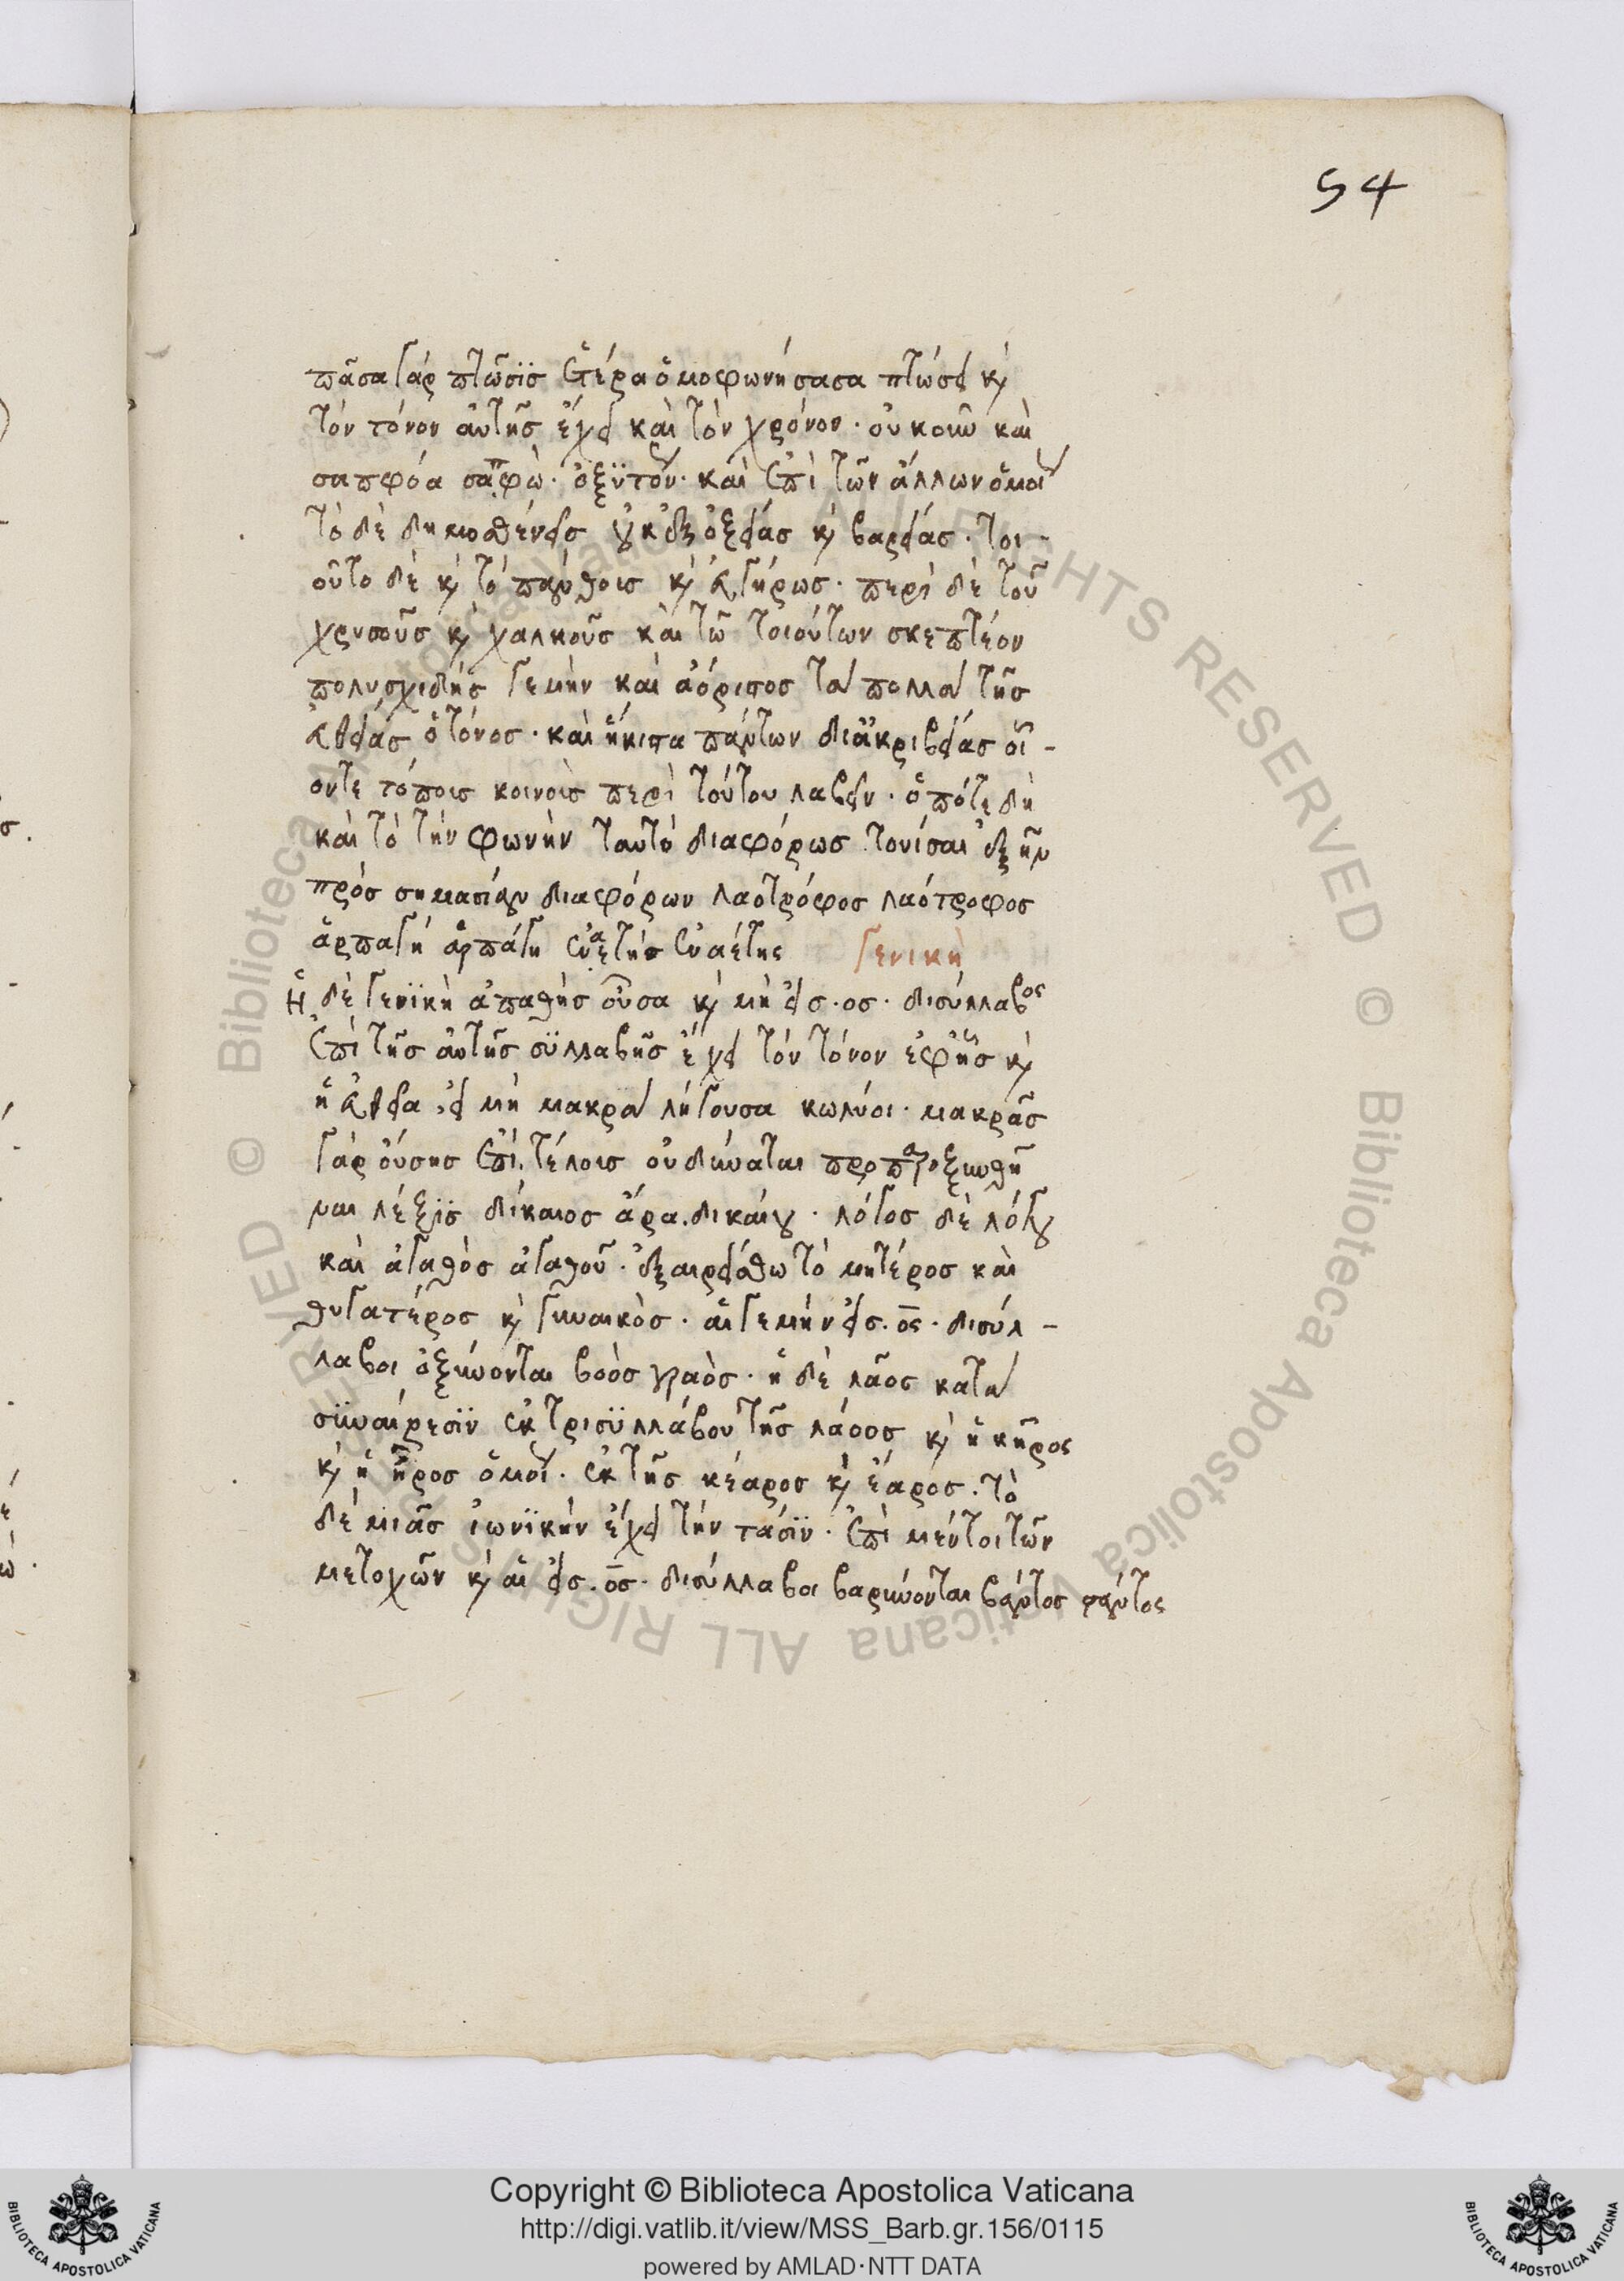 54
πᾶσα γὰρ πτῶσϊς ἑτέρα ὁμοφωνήσασα πτώσει κ(αὶ)
τὸν τόνον αὐτῆς ἔχει καὶ τὸν χρόνον· οὐκοῦν καὶ
σαπφόα σαπφὼ· ὀξϋτον· καὶ ἐπὶ τῶν ἄλλων ὁμοί
τὸ δὲ δημοσθένεις οὐκ ἐξ ὀξείας κ(αὶ) βαρείας· τοι-
οῦτο δὲ κ(αὶ) τὸ πανθοις κ(αὶ) ἀγήρως· περὶ δὲ τοῦ
χρυσοῦς κ(αὶ) χαλκοῦς καὶ τῶ τοιούτων σκεπτέον
πολυσχιδὴς γε μὴν καὶ ἀόριστος τὰ πολλὰ τῆς
εὐθείας ὁ τόνος· καὶ ἥκιστα πάντων διἀκριβείας οἷ-
όντε τόποις κοινοῖς περὶ τούτου λαβεῖν· ὁπότε δὴ
καὶ τὸ τὴν φωνὴν ταυτὸ διαφόρως τονίσαι ἐξῆν
πρὸς σημασίαν διαφόρων λαοτρόφος λαότροφος
ἁρπαγή ἁρπάγη εὐαετής εὐαέτης γενικὴ
Ἡ δὲ γενϊκὴ ἀπαθὴς οὖσα κ(αὶ) μὴ εἰς·ος· δισύλλαβος
ἐπὶ τῆς αὐτῆς σϋλλαβῆς ἔχει τὸν τόνον ἐφ ἧς κ(αὶ)
ἡ εὐθεῖα εἰ μὴ μακρὰ λήγουσα κωλύοι· μακρᾶς
γὰρ οὔσης ἐπὶ τέλοις οὐ δύναται προπαροξυνθῆ
ναι λέξϊς δίκαιος ἄρα δικαίου· λόγος δὲ λόγου
καὶ ἀγαθὸς ἀγαθοῦ· ἐξαιρείσθω τὸ μητέρος καὶ
θυγατέρος κ(αὶ) γυναικὸς· αἱ γε μὴν εἰς·ος· δισύλ-
λαβοι ὀξύνονται βοὸς γραὸς· ἡ δὲ λᾶος κατὰ
σϋναίρεσϊν ἐκ τρισϋλλάβου τῆς λάαος κ(αὶ) ἡ κῆρος
κ(αὶ) ἡ ἦρος ὁμοί· ἐκ τῆς κέαρος κ(αὶ) ἔαρος· τὸ
δὲ μιᾶς ἰωνϊκὴν ἔχει τὴν τάσϊν· ἐπὶ μέντοι τῶν
μετοχῶν κ(αὶ) αἱ εἰς·ος· δισύλλαβοι βαρύνονται βάντος φάντος
Copyright © Biblioteca Apostolica Vaticana
http://digi.vatlib.it/view/MSS_Barb.gr.156/0115
powered by AMLAD·NTT DATA